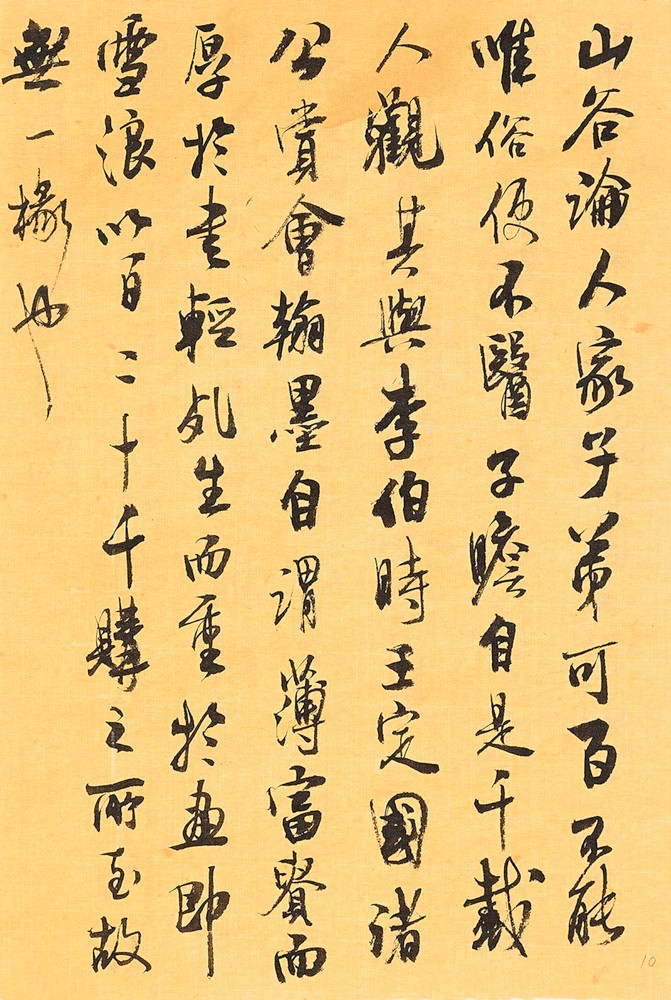 山谷論人家子弟可百不能
唯俗便不醫子瞻自是千載
人觀其與李伯時王定國諸
公賞會翰墨自謂薄富貴而
厚於書輕死生而重於畫即
雪浪以百二十千購之所至故
無一椽也
10